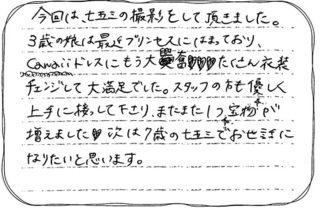 今回は、七五三の撮影をして頂きました。
3歳の娘は最近プリンセスにはまっており、
Cawaiiドレスにもう大興奮♥♥♥たくさん衣装
チェンジして大満足でした。スタッフの方も優しく
上手に接して下さり、またまた1つ宝物が
増えました♥次は7歳の七五三でお世話に
なりたいと思います。